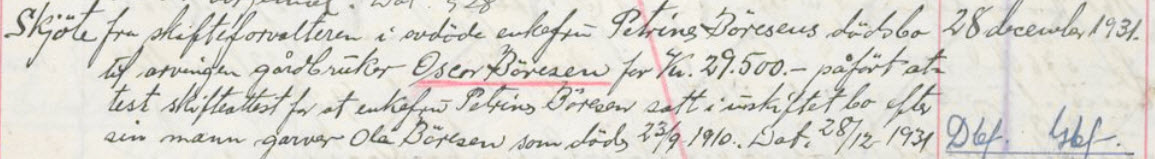 Skjöte fra skifteforvalteren i avdöde enkefru Petrine Böresens dödsbo 28 december 1931.
til arvingen gårdbruker Oscar Böresen for Kr. 29.500.- påfört at-
test skifteattest for at enkefru Petrine Böresen satt i uskiftet bo efter
sin mann garver Ola Böresen som döde 23/9 1910. Dat. 28/12 1931 Dbf. Gbf.